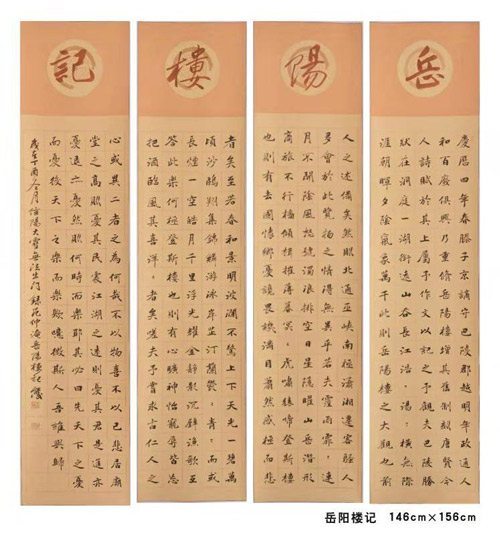 岳
慶曆四年春滕子京謫守巴陵郡越明年政通人
和百廢俱興乃重脩岳陽樓增其舊制刻唐賢今
人詩賦於其上屬予作文以記之予觀夫巴陵勝
狀在洞庭一湖銜遠山吞長江浩々湯々橫無際
涯朝暉夕陰氣象萬千此則岳陽樓之大觀也前
陽
人之述備矣然則北通巫峽南極瀟湘遷客騷人
多會於此覽物之情得無異乎若夫霪雨霏々連
月不開陰風怒號濁浪排空日星隱曜山岳潛形
商旅不行檣傾楫摧薄暮冥々虎嘯猿啼登斯樓
也則有去國懷鄉憂讒畏譏滿目蕭然感極而悲
樓
者矣至若春和景明波瀾不驚上下天光一碧萬
頃沙鷗翔集錦鱗游泳岸芷汀蘭郁々青々而或
長煙一空皓月千里浮光耀金靜影沉璧漁歌互
答此樂何極登斯樓也則有心曠神怡寵辱皆忘
把酒臨風其喜洋々者矣嗟夫予嘗求古仁人之
記
心或異二者之為何哉不以物喜不以己悲居廟
堂之高則憂其民處江湖之遠則憂其君是進亦
憂退亦憂然則何時而樂耶其必曰先天下之憂
而憂後天下之樂而樂歟噫微斯人吾誰與歸
歲在丁酉冬月信陽大雪無法出門錄范仲淹岳陽樓記
岳阳楼记 146cm×156cm